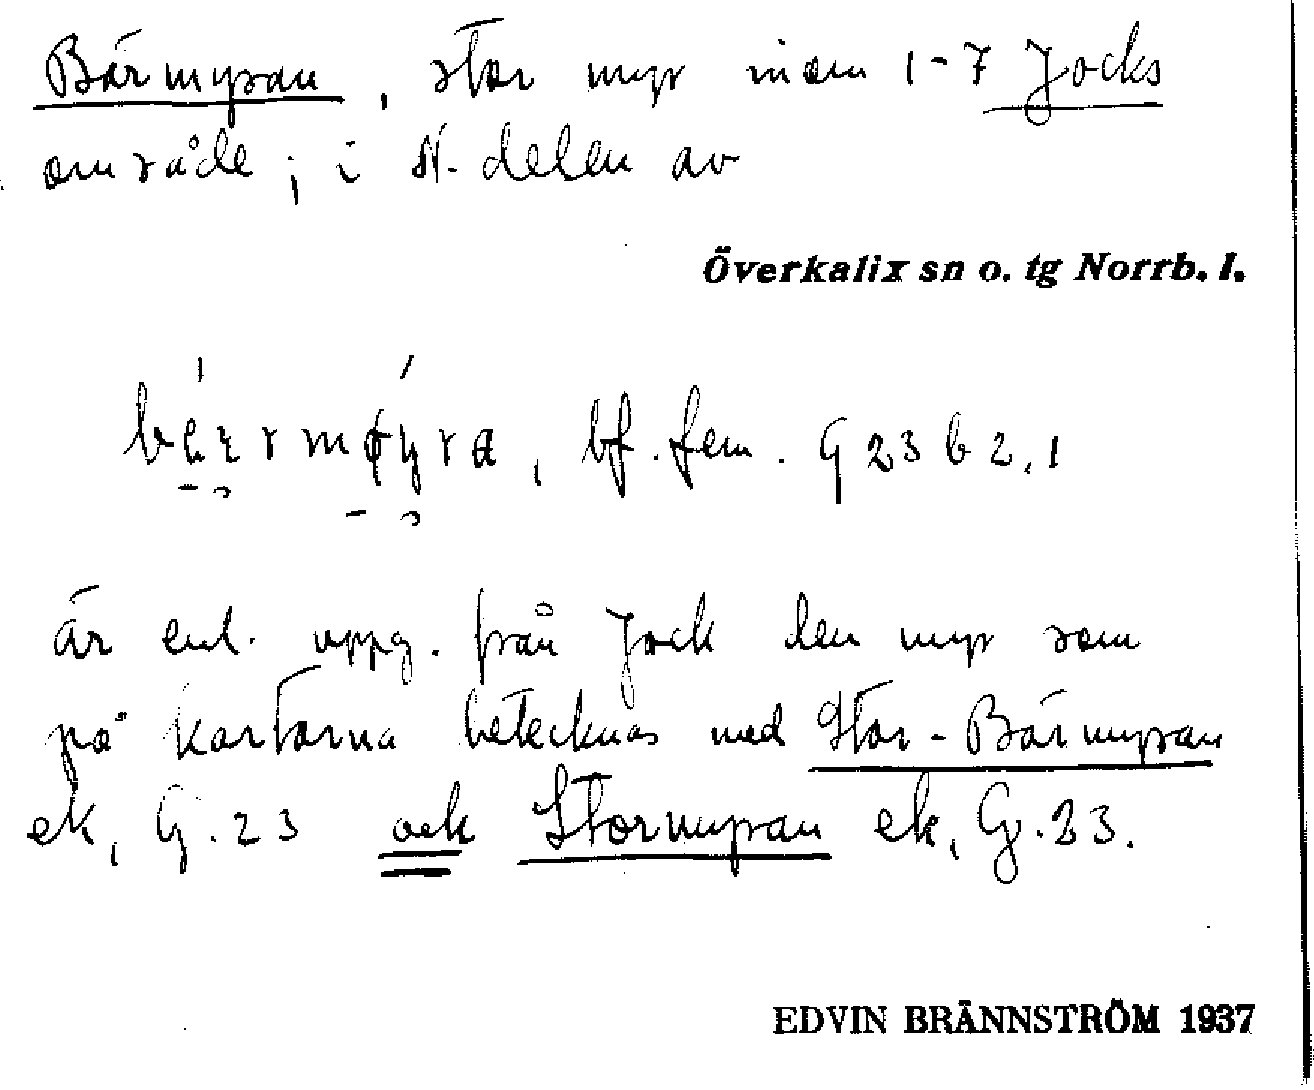 Bärmyran, stor myr inom 1-7 Jocks
område; i N. delen av
Överkalix sn o. tg Norrb. l.
bf. fem. G 23 b 2, 1
är enl. uppg. från Jock den myr som
på kartorna betecknas med Stor-Bärmyran
ek, G. 23 och Stormyran ek, G. 23.
EDVIN BRÄNNSTRÖM 1937